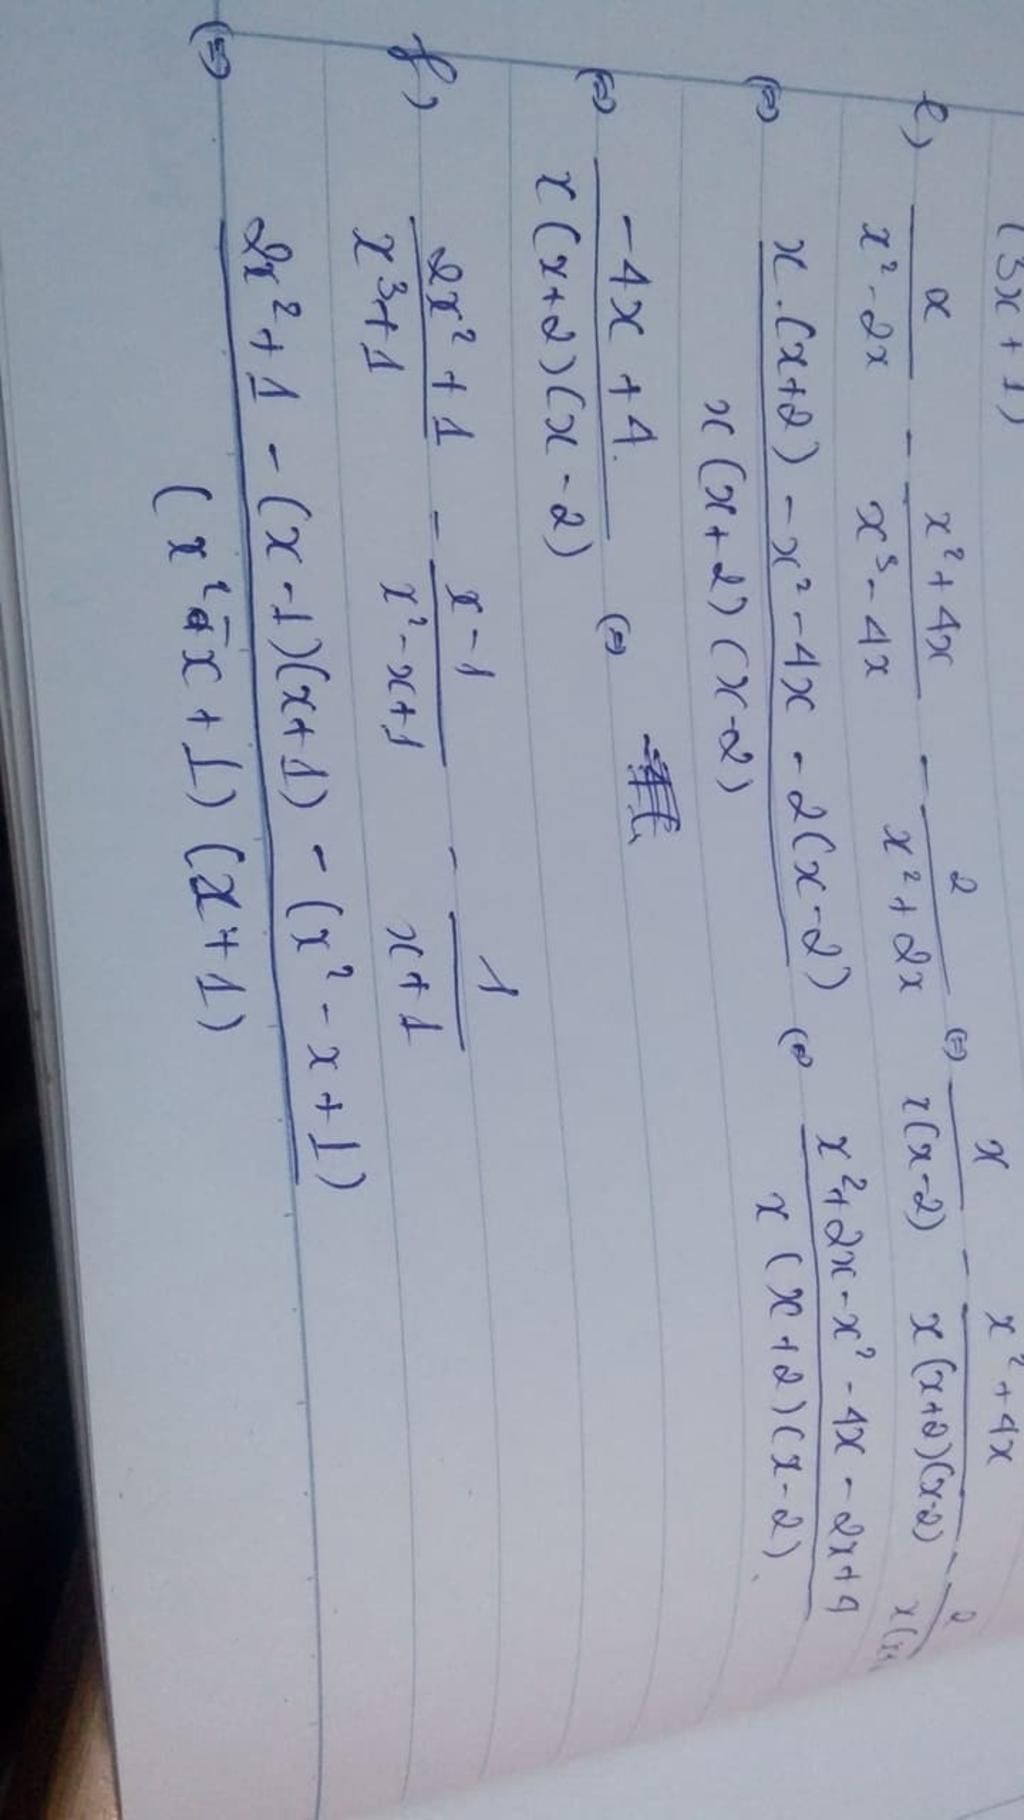 (3x + 1)
e) x / (x² - 2x) - (x² + 4x) / (x³ - 4x) - 2 / (x² + 2x) (=) x / x(x-2) - (x² + 4x) / x(x+2)(x-2) - 2 / x(
(=) (x.(x+2) - x² - 4x - 2(x-2)) / x(x+2)(x-2) (=) (x² + 2x - x² - 4x - 2x + 4) / x(x+2)(x-2)
(=) (-4x + 4) / x(x+2)(x-2) (=)
f) (2x² + 1) / (x³ + 1) - (x - 1) / (x² - x + 1) - 1 / (x + 1)
(=) (2x² + 1 - (x-1)(x+1) - (x² - x + 1)) / (x² - x + 1)(x + 1)